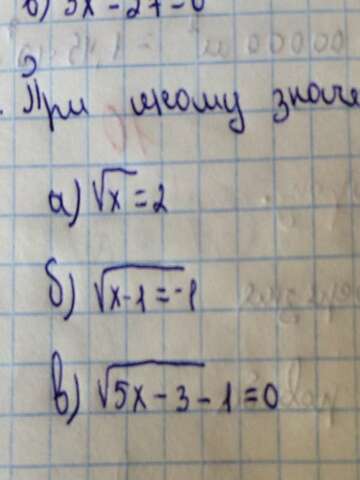 б) 3x - 27 = 0
При якому значе
а) √x = 2
б) √x-1 = -1
в) √5x - 3 - 1 = 0